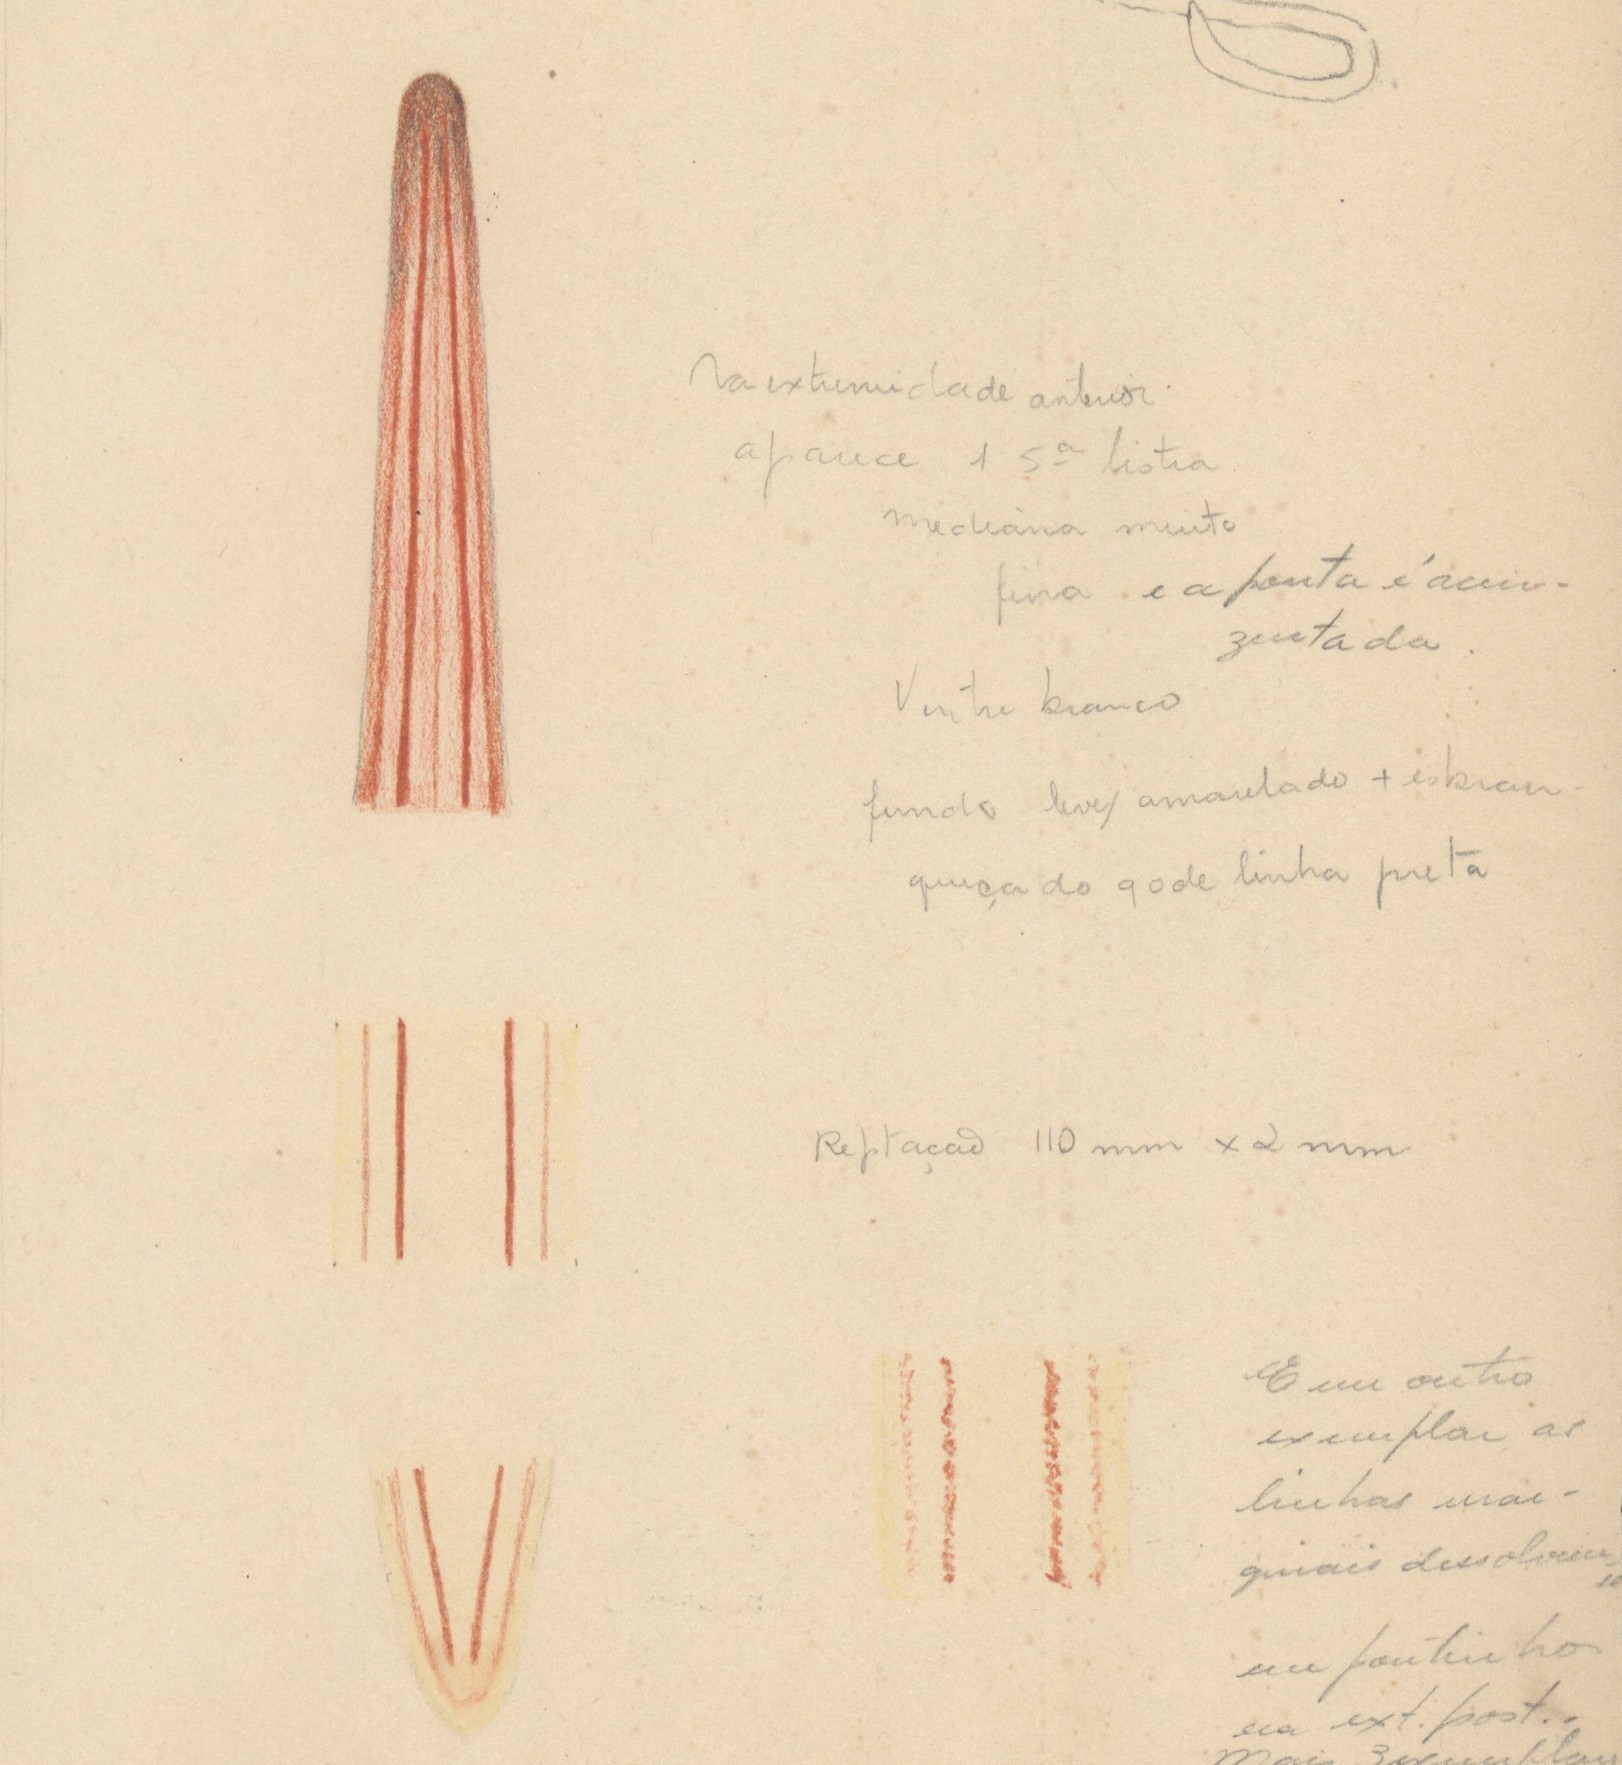 Na extremidade anterior
aparece 1 5ª listra
mediana muito
fina e a ponta é acin-
zentada.
Ventre branco
fundo leve/ amarelado + esbran-
quiçado q o de linha preta
Reptação 110 mm x 2 mm
Em outro
exemplar as
linhas mar-
ginais dissolvem
se
em pontinhos
na ext. post..
Mais 3 exemplares